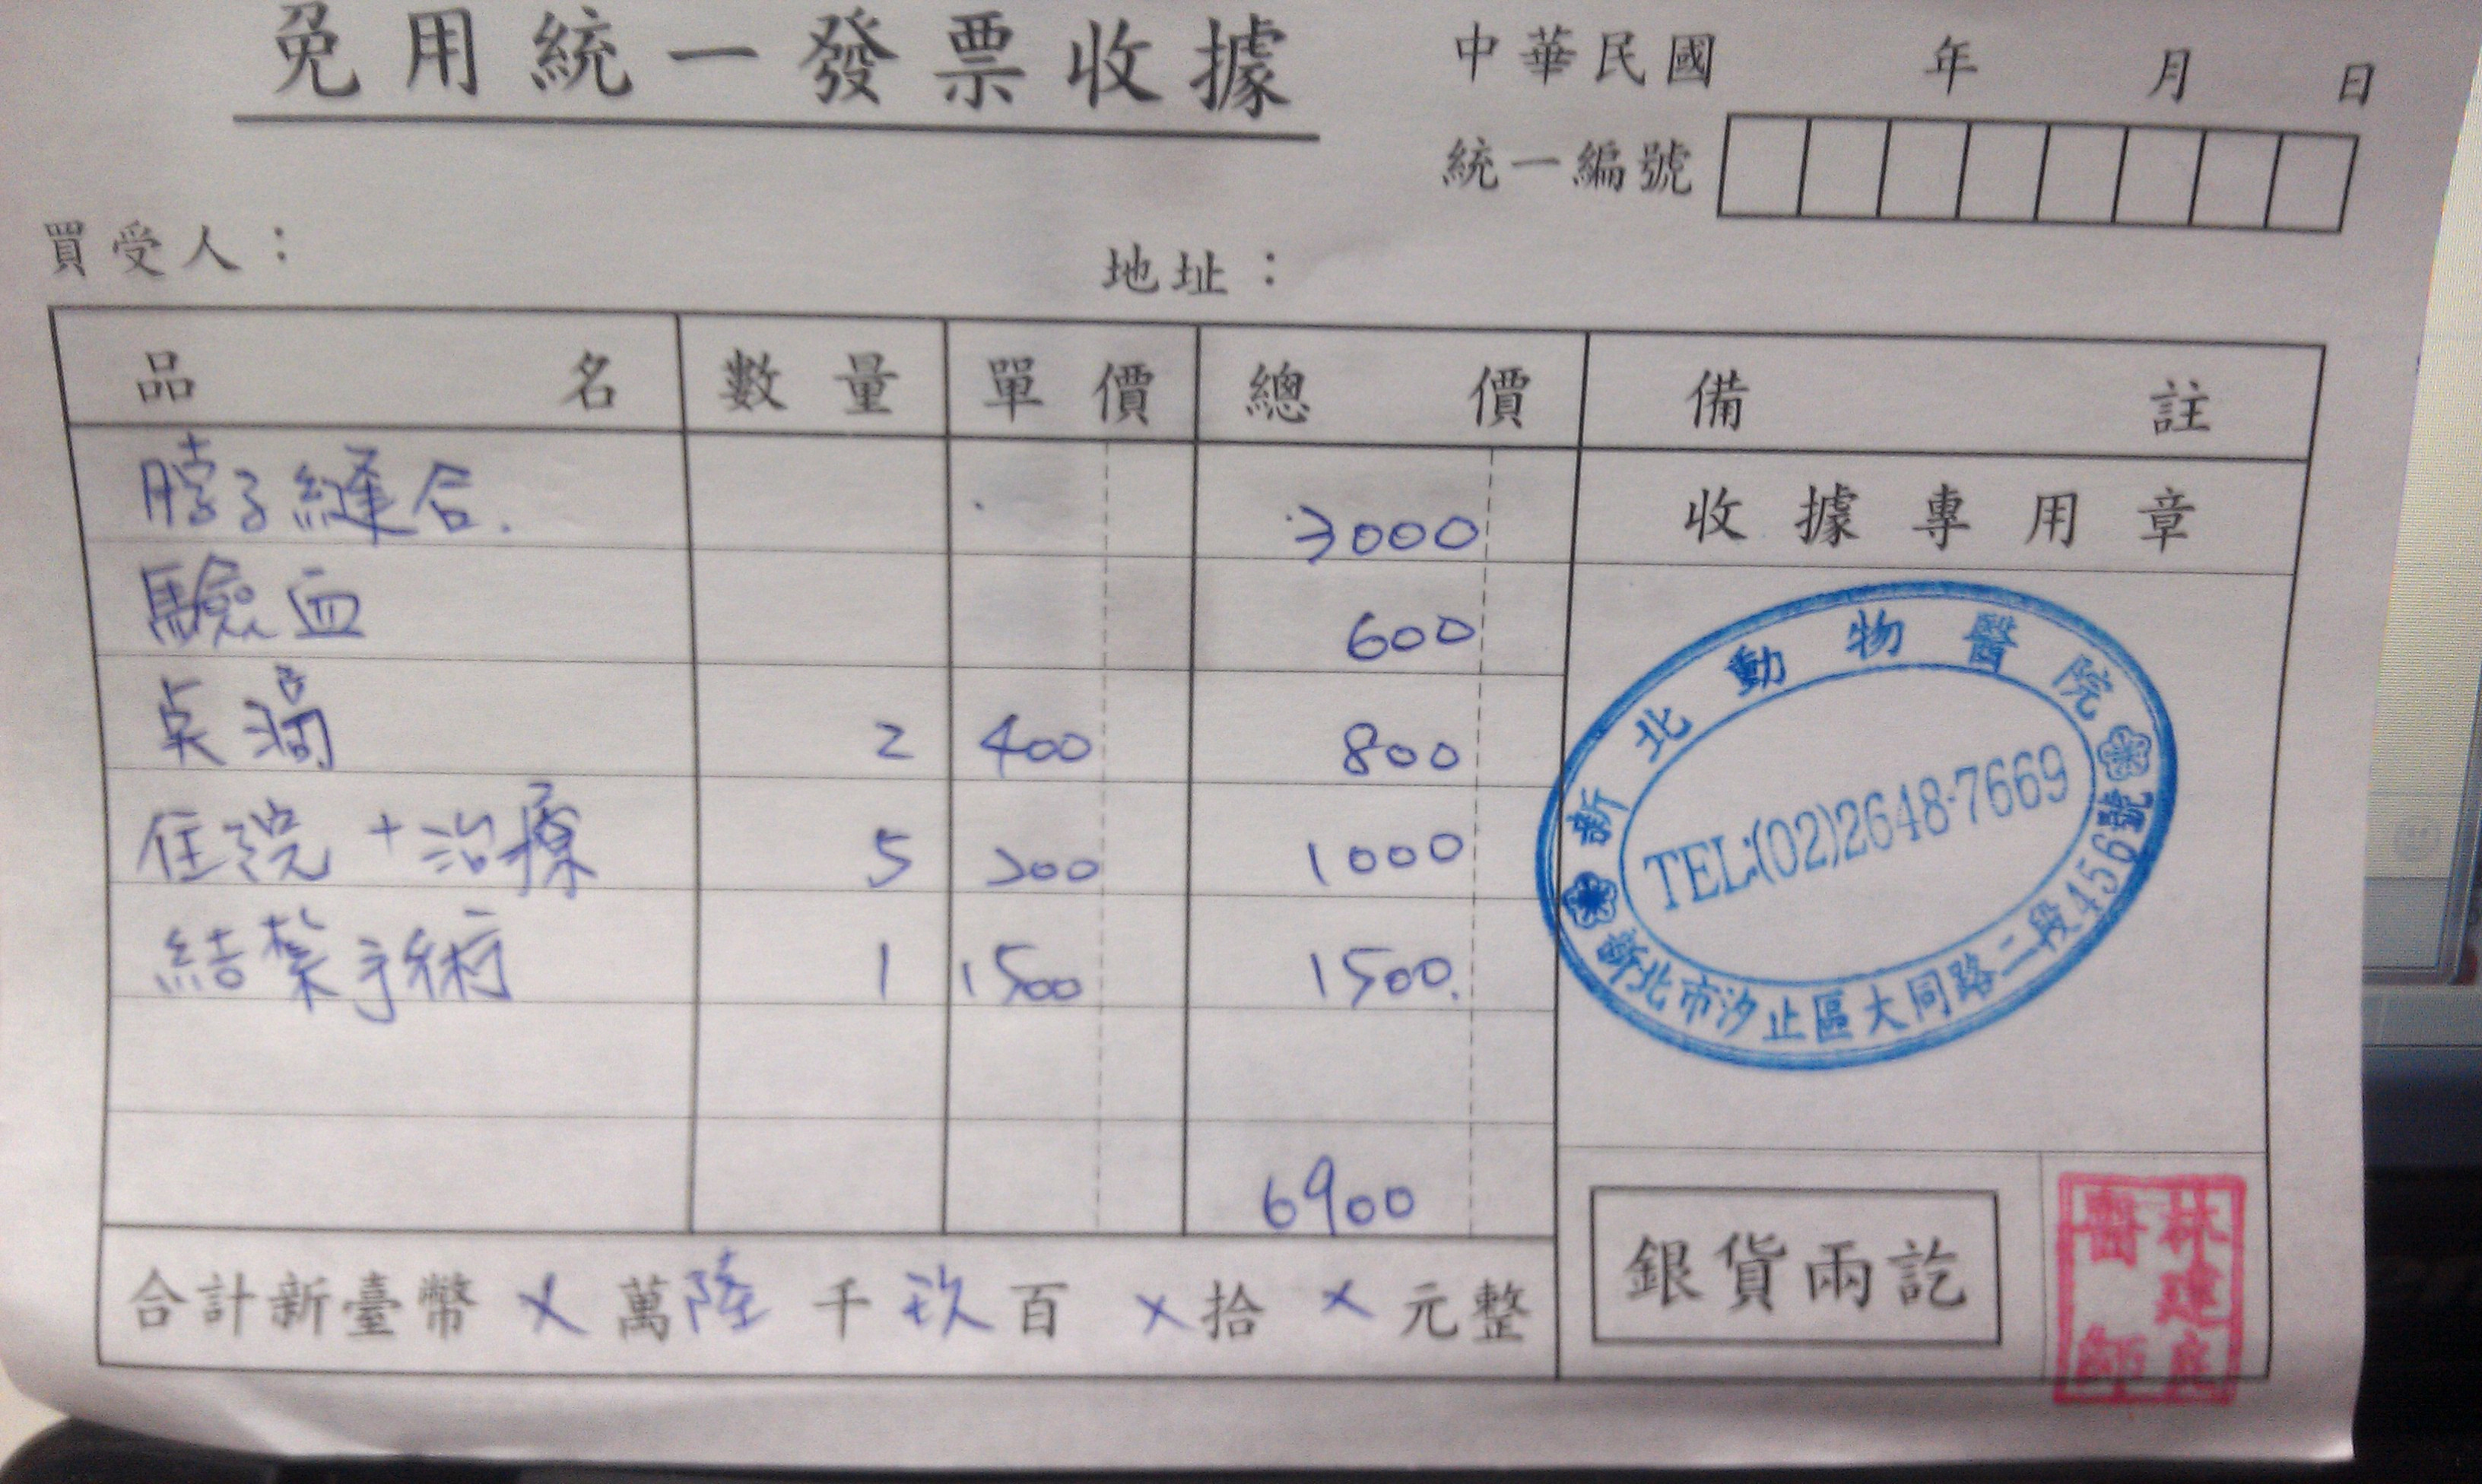 免用統一發票收據
中華民國 年 月 日
統一編號
買受人： 地址：
品名 數量 單價 總價 備註
脖子縫合. 3000
收據專用章
驗血 600
貞滴 2 400 800
住院+治療 5 200 1000
結紮手術 1 1500 1500.
6900
新北動物醫院
TEL:(02)2648-7669
新北市汐止區大同路二段456號
合計新臺幣 X 萬 陸 千 玖 百 X 拾 X 元整
銀貨兩訖
林建
醫師